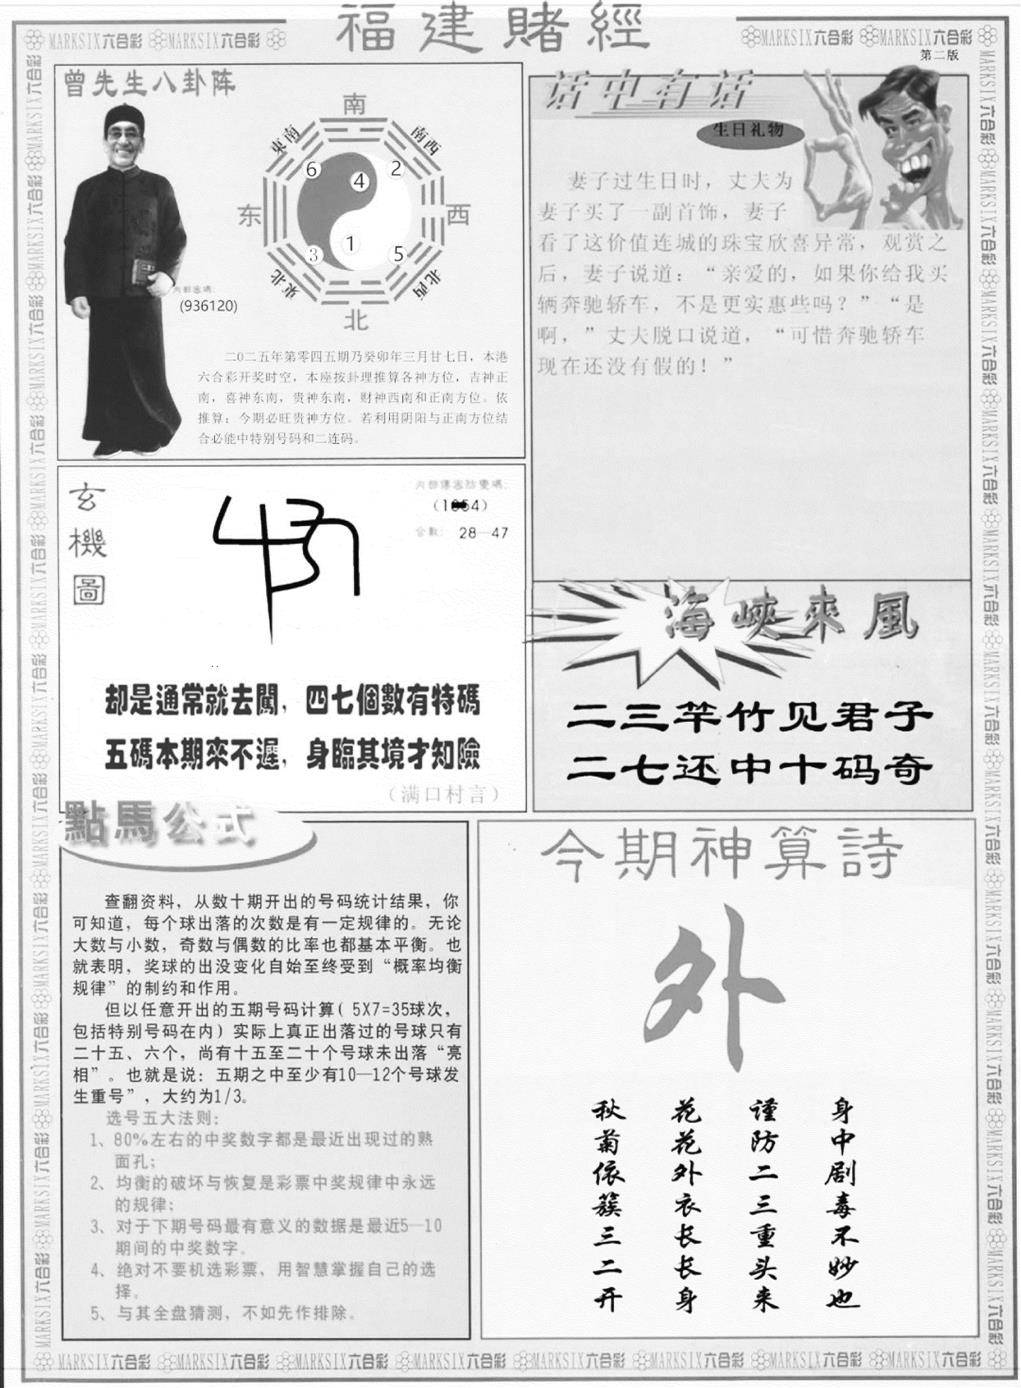 福建賭經
MARKSIX六合彩 MARKSIX六合彩
MARKSIX六合彩 MARKSIX六合彩
第二版
曾先生八卦阵
南
東南
南西
6
4
2
东
西
3
1
5
東北
北西
北
内部密碼:
(936120)
二0二五年第零四五期乃癸卯年三月廿七日，本港
六合彩开奖时空，本座按卦理推算各神方位，吉神正
南，喜神东南，贵神东南，财神西南和正南方位。依
推算：今期必旺贵神方位。若利用阴阳与正南方位结
合必能中特别号码和二连码。
话中有话
生日礼物
妻子过生日时，丈夫为
妻子买了一副首饰，妻子
看了这价值连城的珠宝欣喜异常，观赏之
后，妻子说道：“亲爱的，如果你给我买
辆奔驰轿车，不是更实惠些吗？”“是
啊，”丈夫脱口说道，“可惜奔驰轿车
现在还没有假的！”
玄機圖
合數: 28—47
却是通常就去闖，四七個數有特碼
五碼本期來不遲，身臨其境才知險
（满口村言）
海峽來風
二三竿竹见君子
二七还中十码奇
點馬公式
查翻资料，从数十期开出的号码统计结果，你
可知道，每个球出落的次数是有一定规律的。无论
大数与小数，奇数与偶数的比率也都基本平衡。也
就表明，奖球的出没变化自始至终受到“概率均衡
规律”的制约和作用。
但以任意开出的五期号码计算( 5X7=35球次，
包括特别号码在内) 实际上真正出落过的号球只有
二十五、六个，尚有十五至二十个号球未出落“亮
相”。也就是说: 五期之中至少有10—12个号球发
生重号”，大约为1/3。
选号五大法则:
1、80%左右的中奖数字都是最近出现过的熟
面孔;
2、均衡的破坏与恢复是彩票中奖规律中永远
的规律;
3、对于下期号码最有意义的数据是最近5—10
期间的中奖数字。
4、绝对不要机选彩票，用智慧掌握自己的选
择。
5、与其全盘猜测，不如先作排除。
今期神算詩
外
身中剧毒不妙也
谨防二三重头来
花花外衣长长身
秋菊依簇三二开
MARKSIX六合彩 MARKSIX六合彩 MARKSIX六合彩 MARKSIX六合彩 MARKSIX六合彩 MARKSIX六合彩 MARKSIX六合彩 MARKSIX六合彩